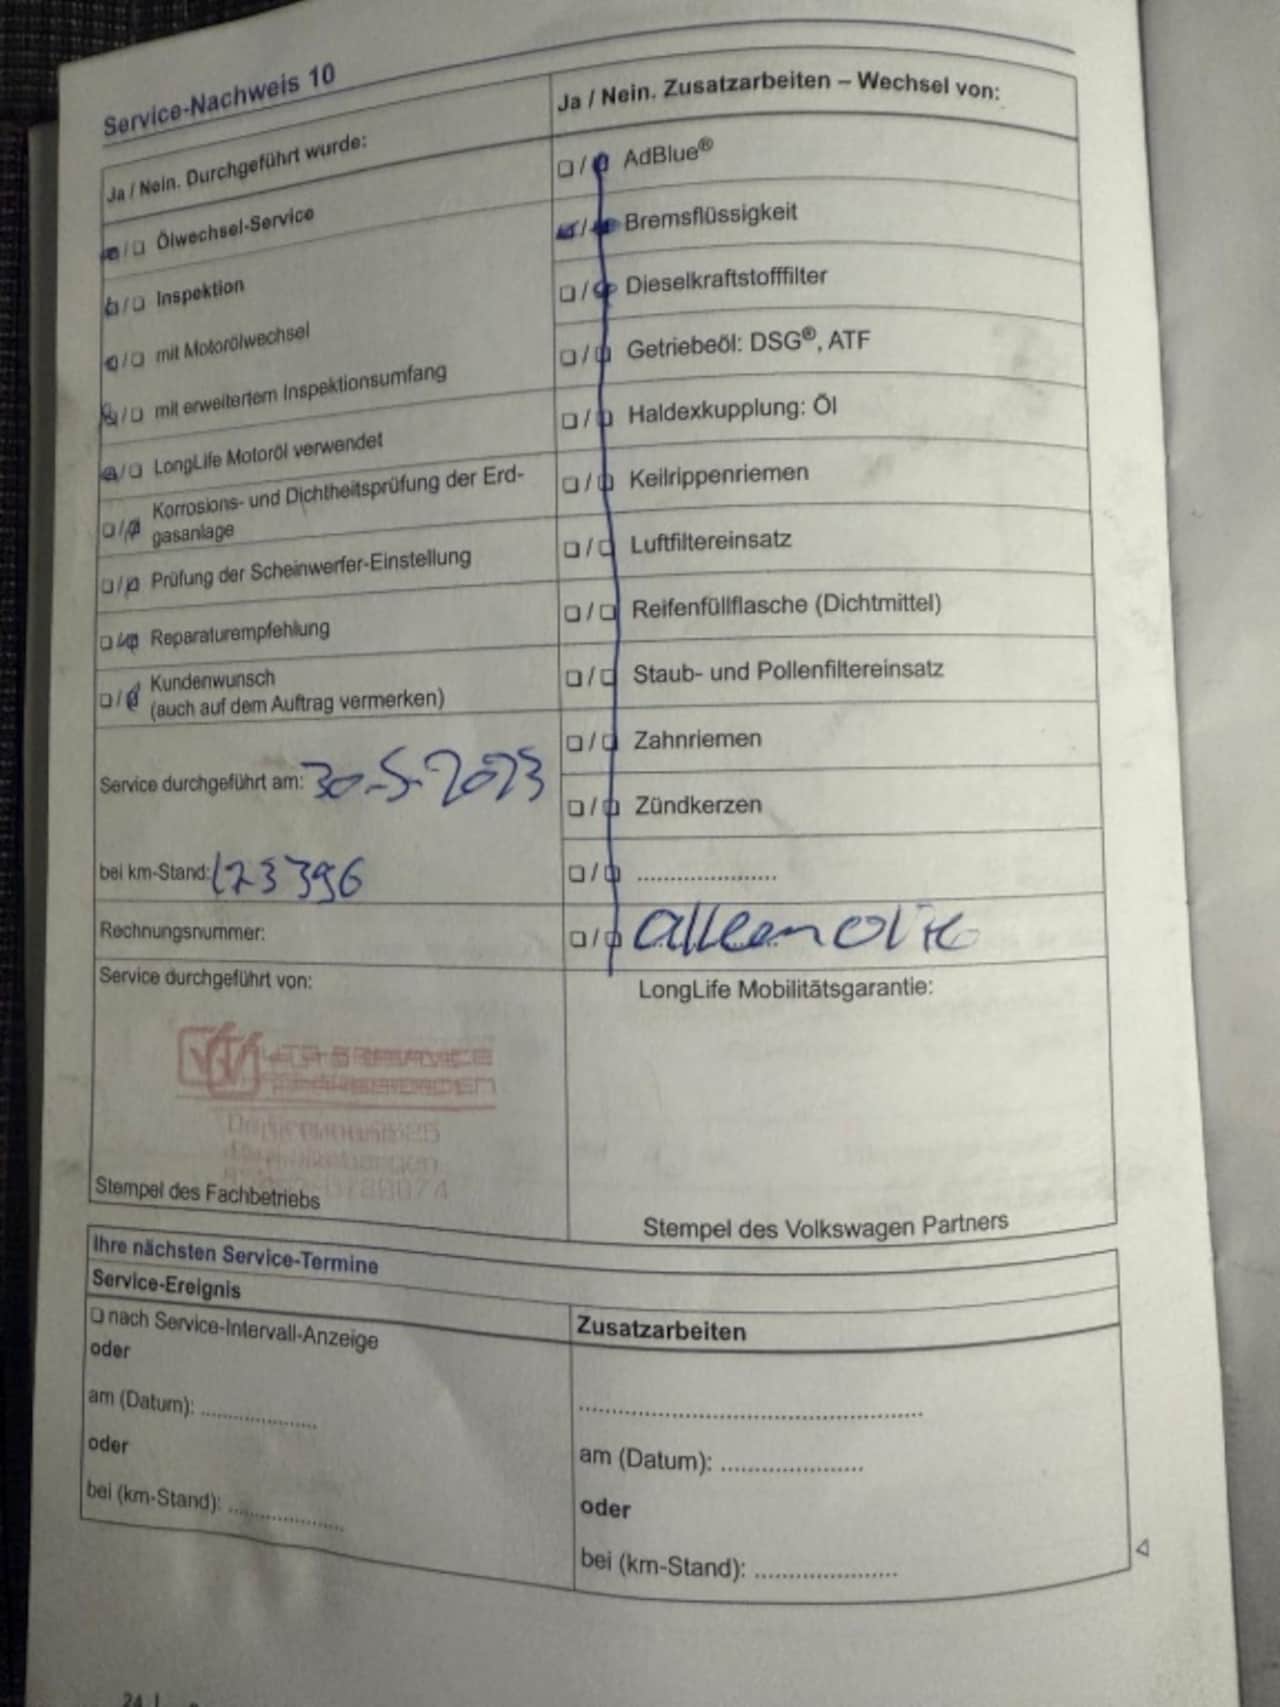 Service-Nachweis 10
Ja / Nein. Durchgeführt wurde:
❏ / ❏ Ölwechsel-Service
❏ / ❏ Inspektion
❏ / ❏ mit Motorölwechsel
❏ / ❏ mit erweitertem Inspektionsumfang
❏ / ❏ LongLife Motoröl verwendet
❏ / ❏ Korrosions- und Dichtheitsprüfung der Erd-
gasanlage
❏ / ❏ Prüfung der Scheinwerfer-Einstellung
❏ / ❏ Reparaturempfehlung
❏ / ❏ Kundenwunsch
(auch auf dem Auftrag vermerken)
Service durchgeführt am: 30-5-2023
bei km-Stand: 173396
Rechnungsnummer:
Service durchgeführt von:
Stempel des Fachbetriebs
Ja / Nein. Zusatzarbeiten – Wechsel von:
❏ / ❏ AdBlue®
❏ / ❏ Bremsflüssigkeit
❏ / ❏ Dieselkraftstofffilter
❏ / ❏ Getriebeöl: DSG®, ATF
❏ / ❏ Haldexkupplung: Öl
❏ / ❏ Keilrippenriemen
❏ / ❏ Luftfiltereinsatz
❏ / ❏ Reifenfüllflasche (Dichtmittel)
❏ / ❏ Staub- und Pollenfiltereinsatz
❏ / ❏ Zahnriemen
❏ / ❏ Zündkerzen
❏ / ❏ .....................
❏ / ❏
LongLife Mobilitätsgarantie:
Stempel des Volkswagen Partners
Ihre nächsten Service-Termine
Service-Ereignis
❏ nach Service-Intervall-Anzeige
oder
am (Datum): .................
oder
bei (km-Stand): .................
Zusatzarbeiten
..................................................
am (Datum): .....................
oder
bei (km-Stand): .....................
24